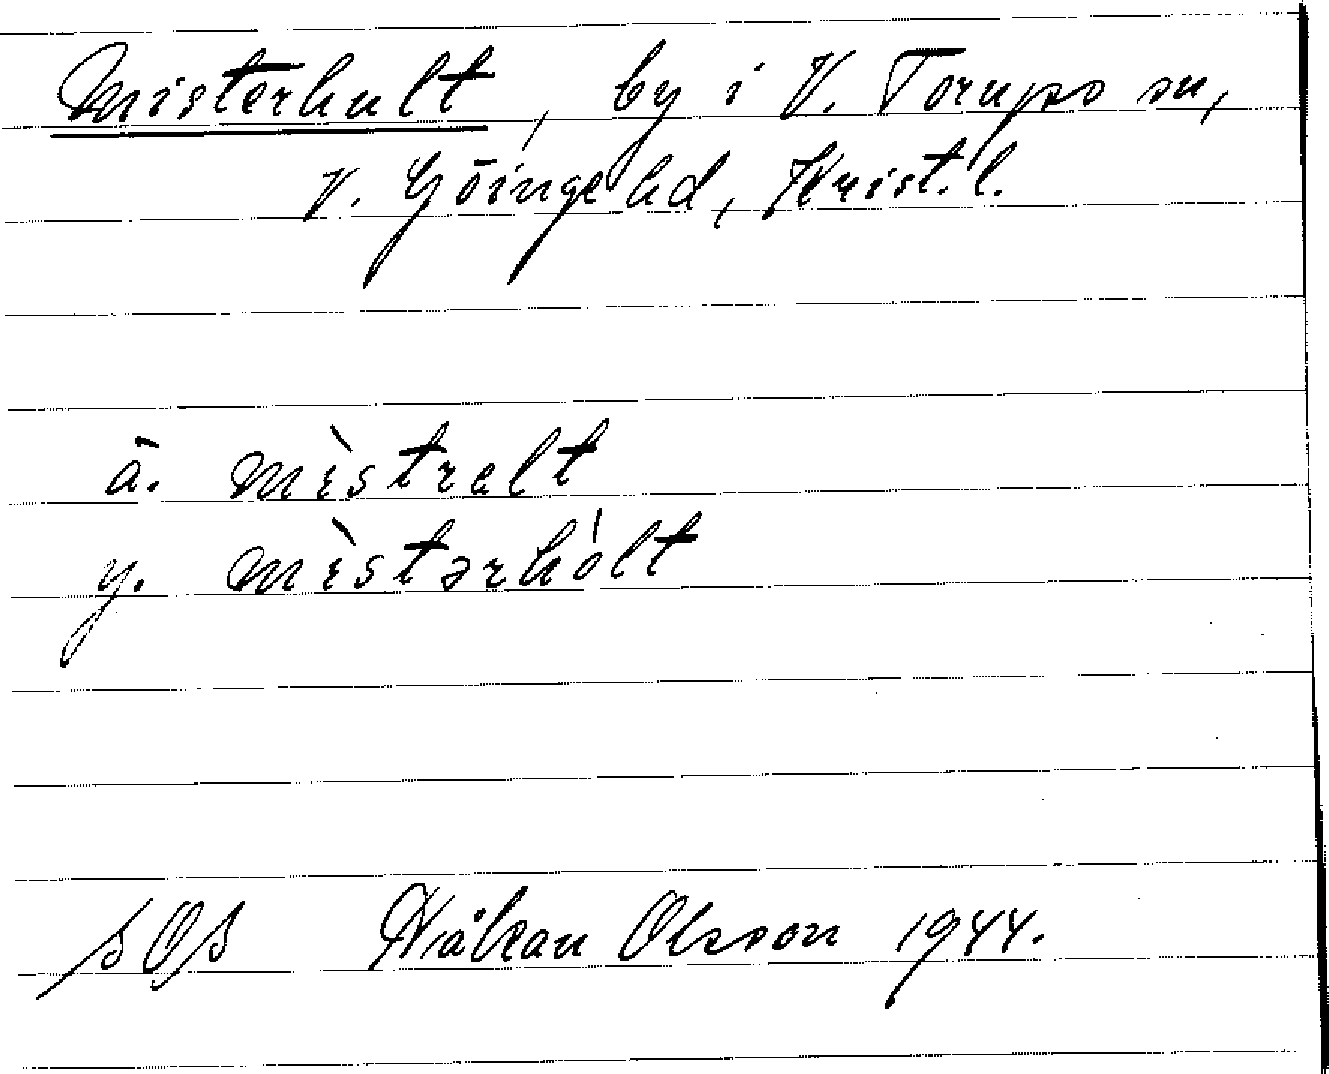 Misterhult, by i V. Torups sn,
V. Göinge hd, Krist. l.
ä. mìstrelt
y. mìstərhólt
SOS Håkan Olsson 1944.